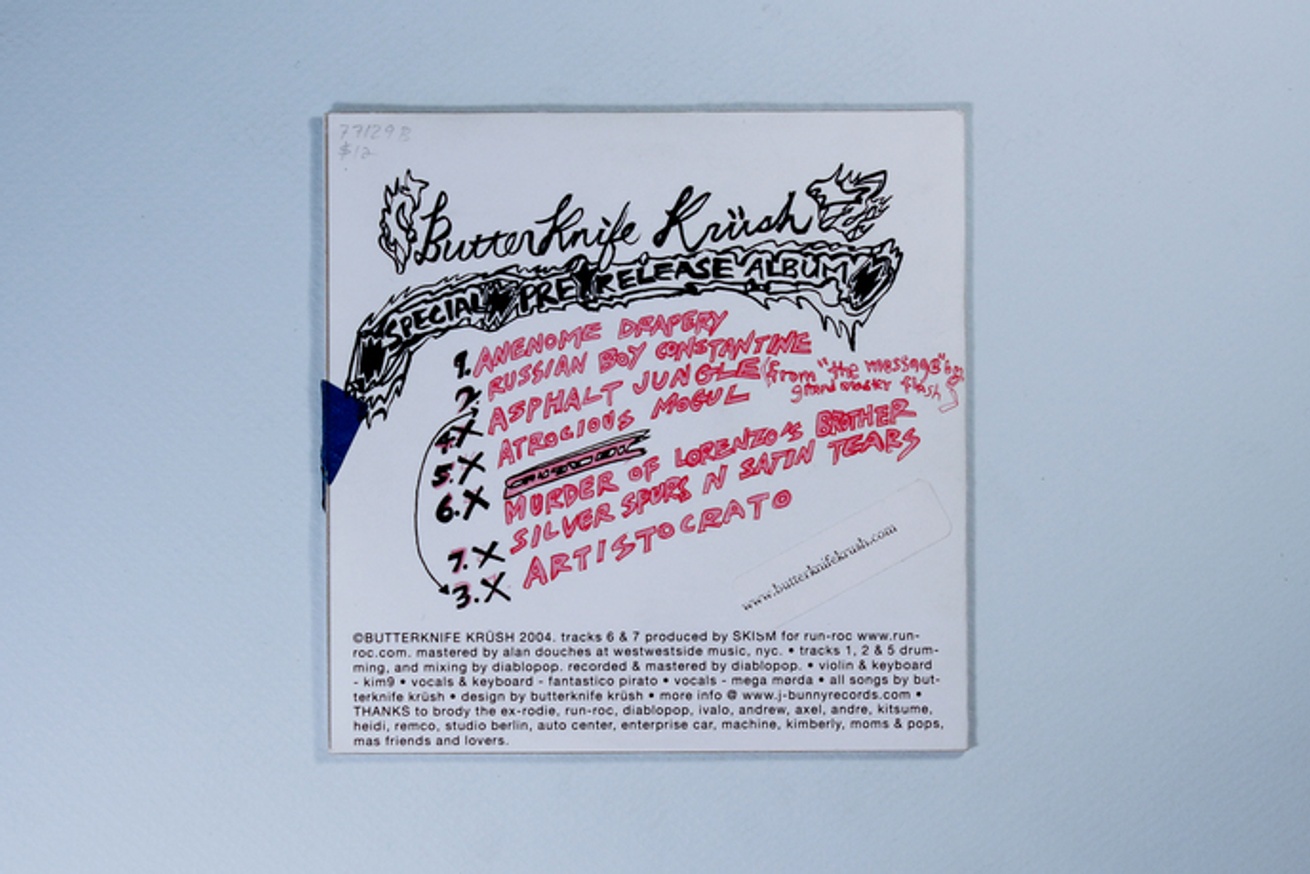 77129B
$12
ButterKnife Krüsh
SPECIAL PRE RELEASE ALBUM
1. ANENOME DRAPERY
2. RUSSIAN BOY CONSTANTINE
4.X ASPHALT JUNGLE (from "the message" by
grand master flash)
5.X ATROCIOUS MOGUL
6.X MURDER OF LORENZO'S BROTHER
7.X SILVER SPURS N SATIN TEARS
3.X ARTISTOCRATO
www.butterknifekrush.com
©BUTTERKNIFE KRÜSH 2004. tracks 6 & 7 produced by SKISM for run-roc www.run-
roc.com. mastered by alan douches at westwestside music, nyc. • tracks 1, 2 & 5 drum-
ming, and mixing by diablopop. recorded & mastered by diablopop. • violin & keyboard
- kim9 • vocals & keyboard - fantastico pirato • vocals - mega mørda • all songs by but-
terknife krüsh • design by butterknife krüsh • more info @ www.j-bunnyrecords.com •
THANKS to brody the ex-rodie, run-roc, diablopop, ivalo, andrew, axel, andre, kitsume,
heidi, remco, studio berlin, auto center, enterprise car, machine, kimberly, moms & pops,
mas friends and lovers.